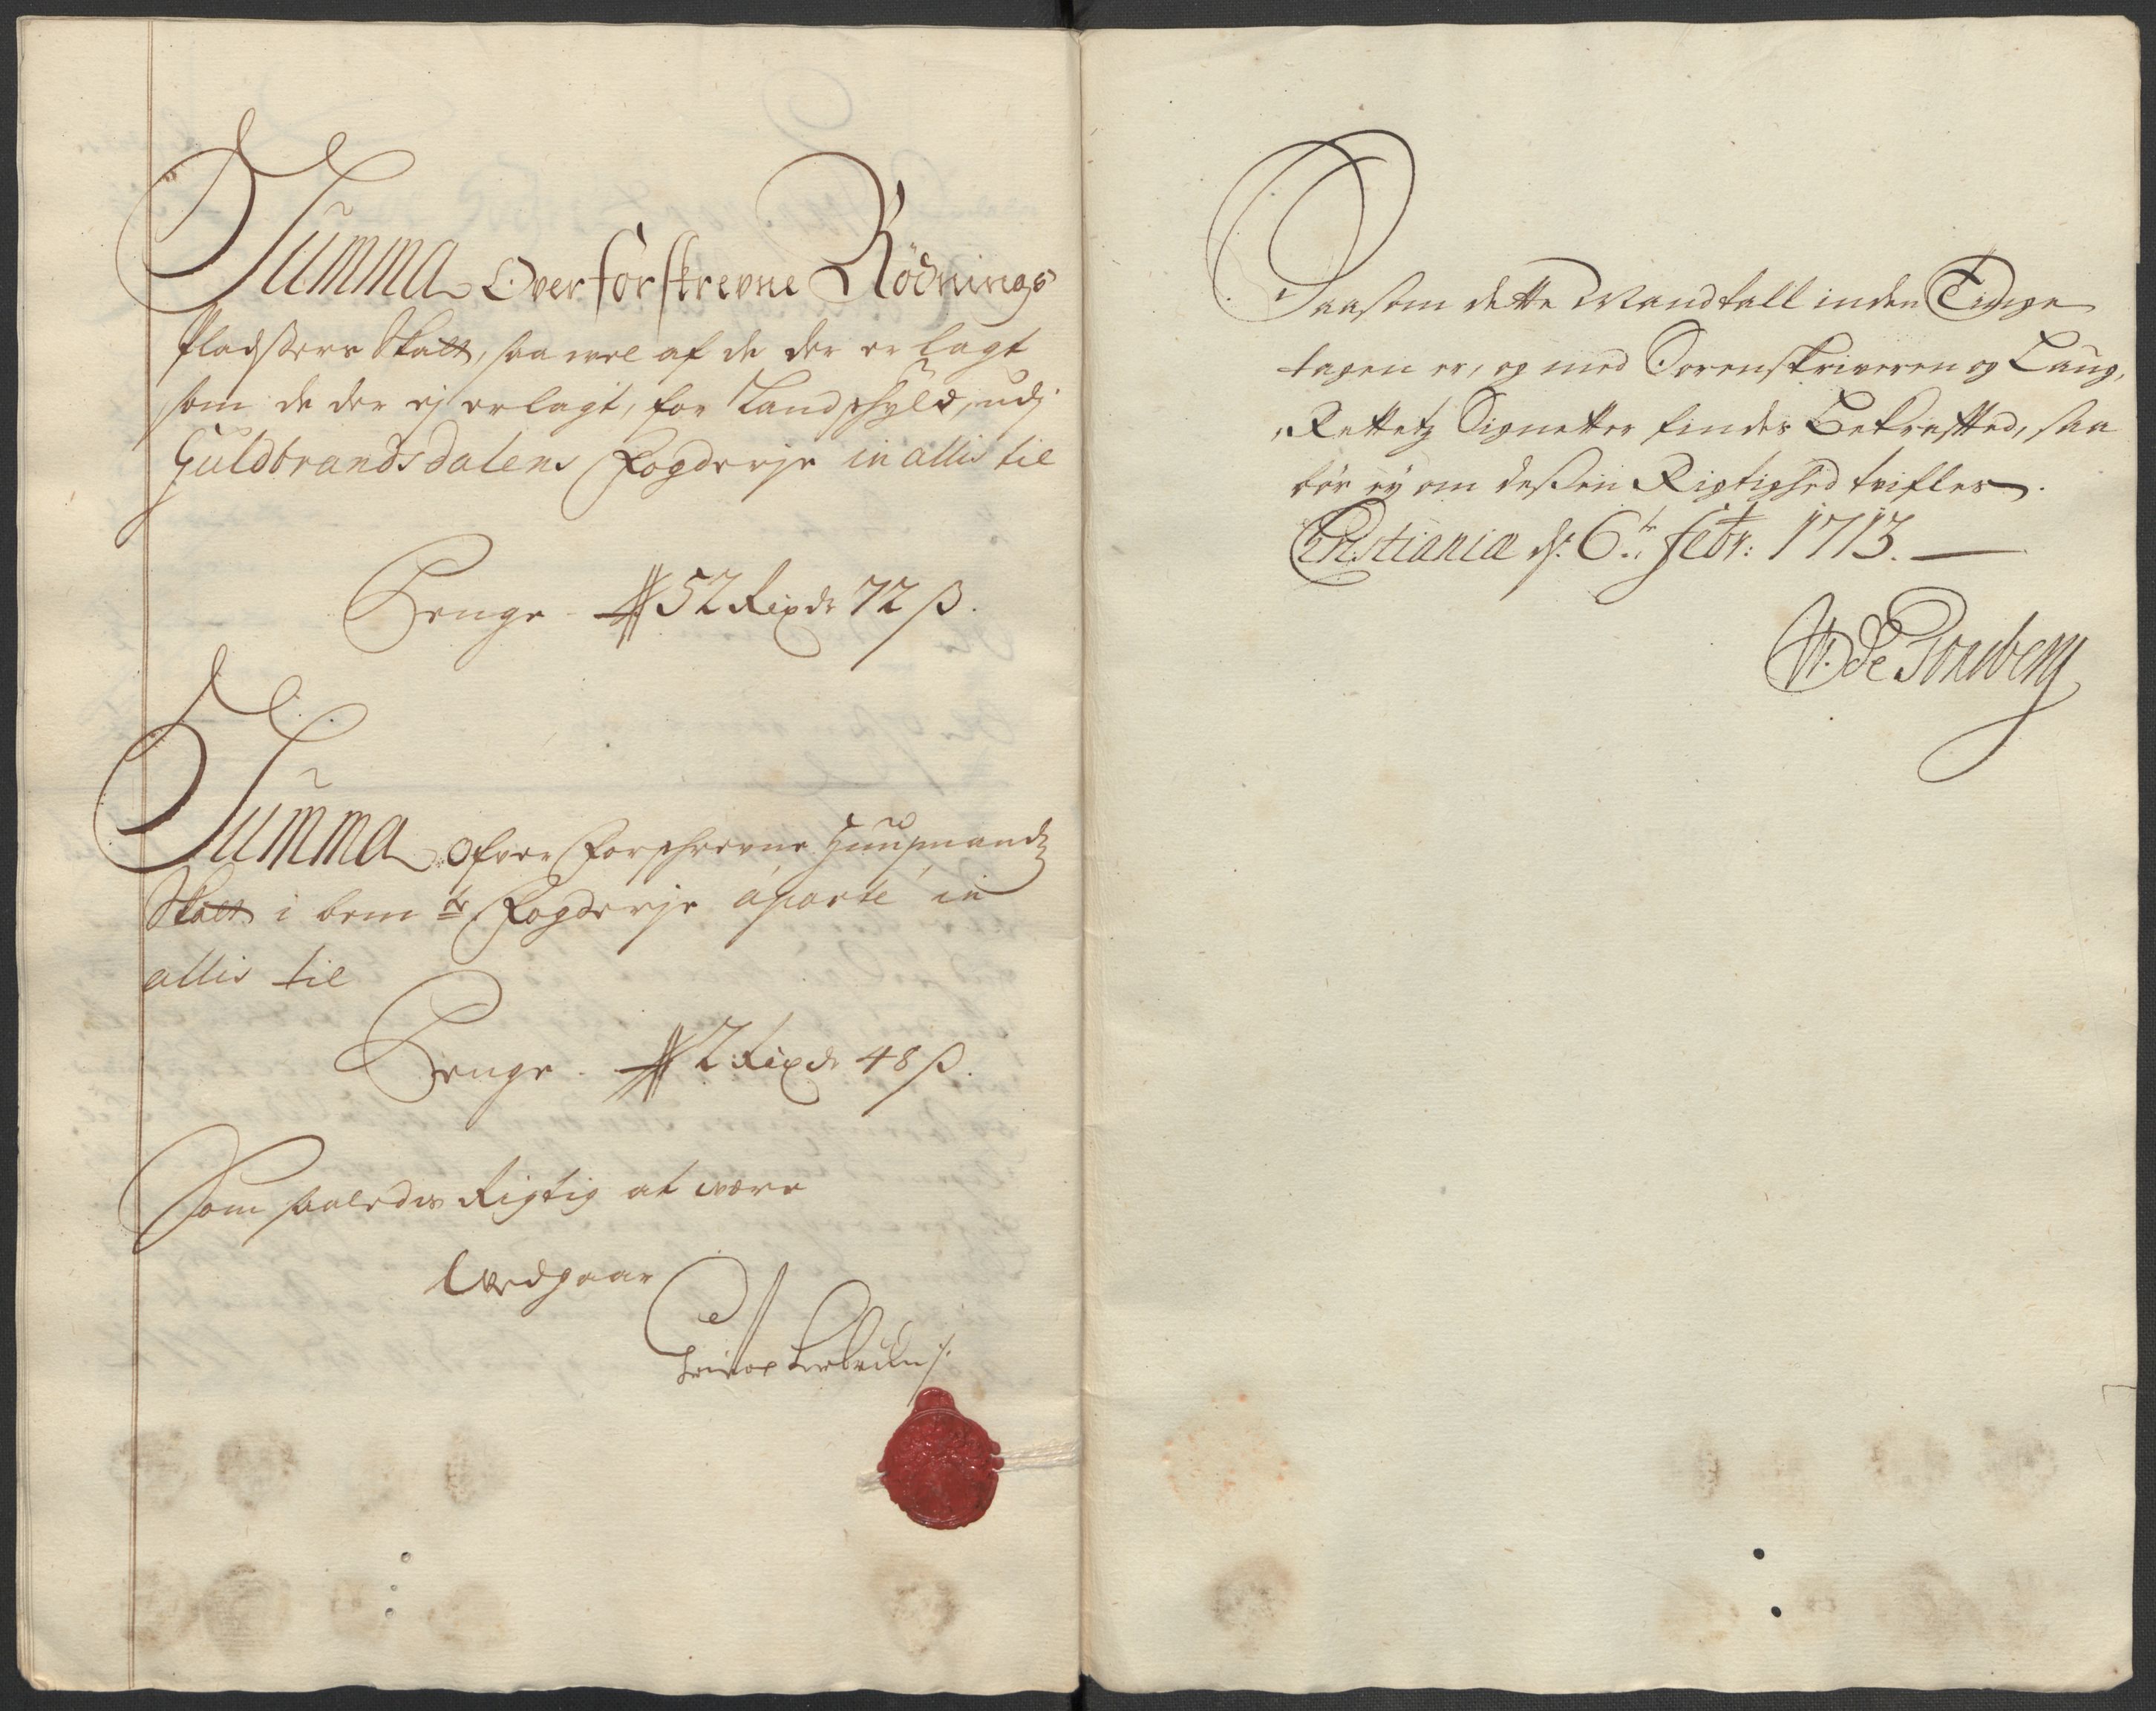 Summa Over forskrevne Rödnings
Pladsers Skatt, saa vel af de der er lagt
som de der ej er lagt, for Landschyld, udj
Guldbrandsdalens Fogderje in allis til
Penge - 52 Rixdr 72 ß.
Summa ofver forschrevne Huusmands
Skatt i bemte Fogderje áparte in
allis til
Penge - 2 Rixdr 48 ß.
Som saaledes Rigtig at være
Vedgaar
Saasom dette Mandtall inden Tinge
tagen er, og med Sorenskriveren og Laug-
Rettetz Signetter findes Bekreftted, saa
bör ey om dessen Rigtighed tvifles.
Christiania d. 6te Febr: 1713.
W. de Tonsberg